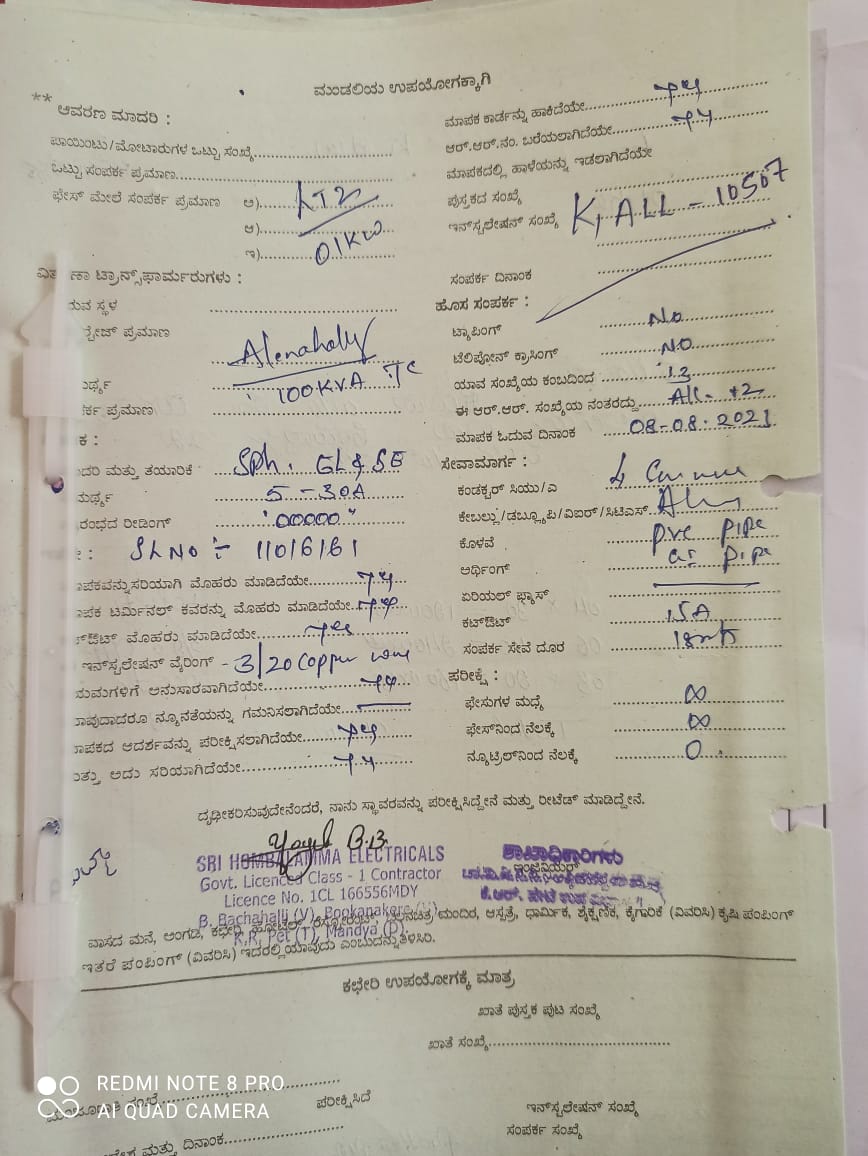 ಮಂಡಲಿಯ ಉಪಯೋಗಕ್ಕಾಗಿ
** ಆವರಣ ಮಾದರಿ :
ಪಾಯಿಂಟು/ಮೋಟಾರುಗಳ ಒಟ್ಟು ಸಂಖ್ಯೆ
ಒಟ್ಟು ಸಂಪರ್ಕ ಪ್ರಮಾಣ
ಫೇಸ್ ಮೇಲೆ ಸಂಪರ್ಕ ಪ್ರಮಾಣ ಅ) LT2
ಆ)
ಇ) 01KW
ಣಾ ಟ್ರಾನ್ಸ್‌ಫಾರ್ಮರುಗಳು :
ರುವ ಸ್ಥಳ
ಪ್ರಮಾಣ
Alenahally
100KVA TC
ರ್ಕ ಪ್ರಮಾಣ
ಕ :
ದರಿ ಮತ್ತು ತಯಾರಿಕೆ SPh. GL & SE
5-30A
ರಂಭದ ರೀಡಿಂಗ್ "00000"
SL NO :- 11016161
ಾಪಕವನ್ನು ಸರಿಯಾಗಿ ಮೊಹರು ಮಾಡಿದೆಯೇ yes
ಾಪಕ ಟರ್ಮಿನಲ್ ಕವರನ್ನು ಮೊಹರು ಮಾಡಿದೆಯೇ yes
ಕಟ್‌ಔಟ್ ಮೊಹರು ಮಾಡಿದೆಯೇ yes
ಇನ್‌ಸ್ಟಲೇಷನ್ ವೈರಿಂಗ್ - 3/20 Copper wire
ಯಮಗಳಿಗೆ ಅನುಸಾರವಾಗಿದೆಯೇ yes
ಾವುದಾದರೂ ನ್ಯೂನತೆಯನ್ನು ಗಮನಿಸಲಾಗಿದೆಯೇ
ಾಪಕದ ಆದರ್ಶವನ್ನು ಪರೀಕ್ಷಿಸಲಾಗಿದೆಯೇ yes
ತ್ತು ಅದು ಸರಿಯಾಗಿದೆಯೇ yes
ಮಾಪಕ ಕಾರ್ಡನ್ನು ಹಾಕಿದೆಯೇ yes
ಆರ್.ಆರ್.ನಂ. ಬರೆಯಲಾಗಿದೆಯೇ yes
ಮಾಪಕದಲ್ಲಿ ಹಾಳೆಯನ್ನು ಇಡಲಾಗಿದೆಯೇ
ಪುಸ್ತಕದ ಸಂಖ್ಯೆ
ಇನ್‌ಸ್ಟಲೇಷನ್ ಸಂಖ್ಯೆ K, ALL - 10507
ಸಂಪರ್ಕ ದಿನಾಂಕ
ಹೊಸ ಸಂಪರ್ಕ :
ಟ್ಯಾಪಿಂಗ್ No
ಟೆಲಿಫೋನ್ ಕ್ರಾಸಿಂಗ್ NO
ಯಾವ ಸಂಖ್ಯೆಯ ಕಂಬದಿಂದ 12
ಈ ಆರ್.ಆರ್. ಸಂಖ್ಯೆಯ ನಂತರದ್ದು
ಮಾಪಕ ಓದುವ ದಿನಾಂಕ 08-08-2021
ಸೇವಾಮಾರ್ಗ :
ಕಂಡಕ್ಟರ್ ಸಿಯು/ಎ
ಕೇಬಲ್ಲು/ಡಬ್ಲ್ಯೂಪಿ/ವಿಐಆರ್/ಸಿಟಿಎಸ್
ಕೊಳವೆ pvc pipe
ಅರ್ಥಿಂಗ್ GI pipe
ಏರಿಯಲ್ ಫ್ಯೂಸ್
ಕಟ್‌ಔಟ್ 15A
ಸಂಪರ್ಕ ಸೇವೆ ದೂರ 18mts
ಪರೀಕ್ಷೆ :
ಫೇಸುಗಳ ಮಧ್ಯೆ ∞
ಫೇಸ್‌ನಿಂದ ನೆಲಕ್ಕೆ ∞
ನ್ಯೂಟ್ರಲ್‌ನಿಂದ ನೆಲಕ್ಕೆ 0
ದೃಢೀಕರಿಸುವುದೇನೆಂದರೆ, ನಾನು ಸ್ಥಾವರವನ್ನು ಪರೀಕ್ಷಿಸಿದ್ದೇನೆ ಮತ್ತು ರೀಟೆಡ್ ಮಾಡಿದ್ದೇನೆ.
SRI HOMBALAMMA ELECTRICALS
Govt. Licenced Class - 1 Contractor
Licence No. 1CL 166556MDY
B. Bachahalli (V), Bookanakere (H)
K.R. Pet (T), Mandya (D).
ಶಾಖಾಧಿಕಾರಿಗಳು
ಇಂಜಿನಿಯರ್
ವಾಸದ ಮನೆ, ಅಂಗಡಿ, ಕಛೇರಿ, ಹೋಟೆಲ್, ರೆಸ್ಟೋರೆಂಟ್, ಚಲನಚಿತ್ರ ಮಂದಿರ, ಆಸ್ಪತ್ರೆ, ಧಾರ್ಮಿಕ, ಶೈಕ್ಷಣಿಕ, ಕೈಗಾರಿಕೆ (ವಿವರಿಸಿ) ಕೃಷಿ ಪಂಪಿಂಗ್
ಇತರೆ ಪಂಪಿಂಗ್ (ವಿವರಿಸಿ) ಇದರಲ್ಲಿ ಯಾವುದು ಎಂಬುದನ್ನು ತಿಳಿಸಿರಿ.
ಕಛೇರಿ ಉಪಯೋಗಕ್ಕೆ ಮಾತ್ರ
ಖಾತೆ ಪುಸ್ತಕ ಪುಟ ಸಂಖ್ಯೆ
ಖಾತೆ ಸಂಖ್ಯೆ
ಪರೀಕ್ಷಿಸಿದೆ
ಇನ್‌ಸ್ಟಲೇಷನ್ ಸಂಖ್ಯೆ
ಮತ್ತು ದಿನಾಂಕ
ಸಂಪರ್ಕ ಸಂಖ್ಯೆ
REDMI NOTE 8 PRO
AI QUAD CAMERA